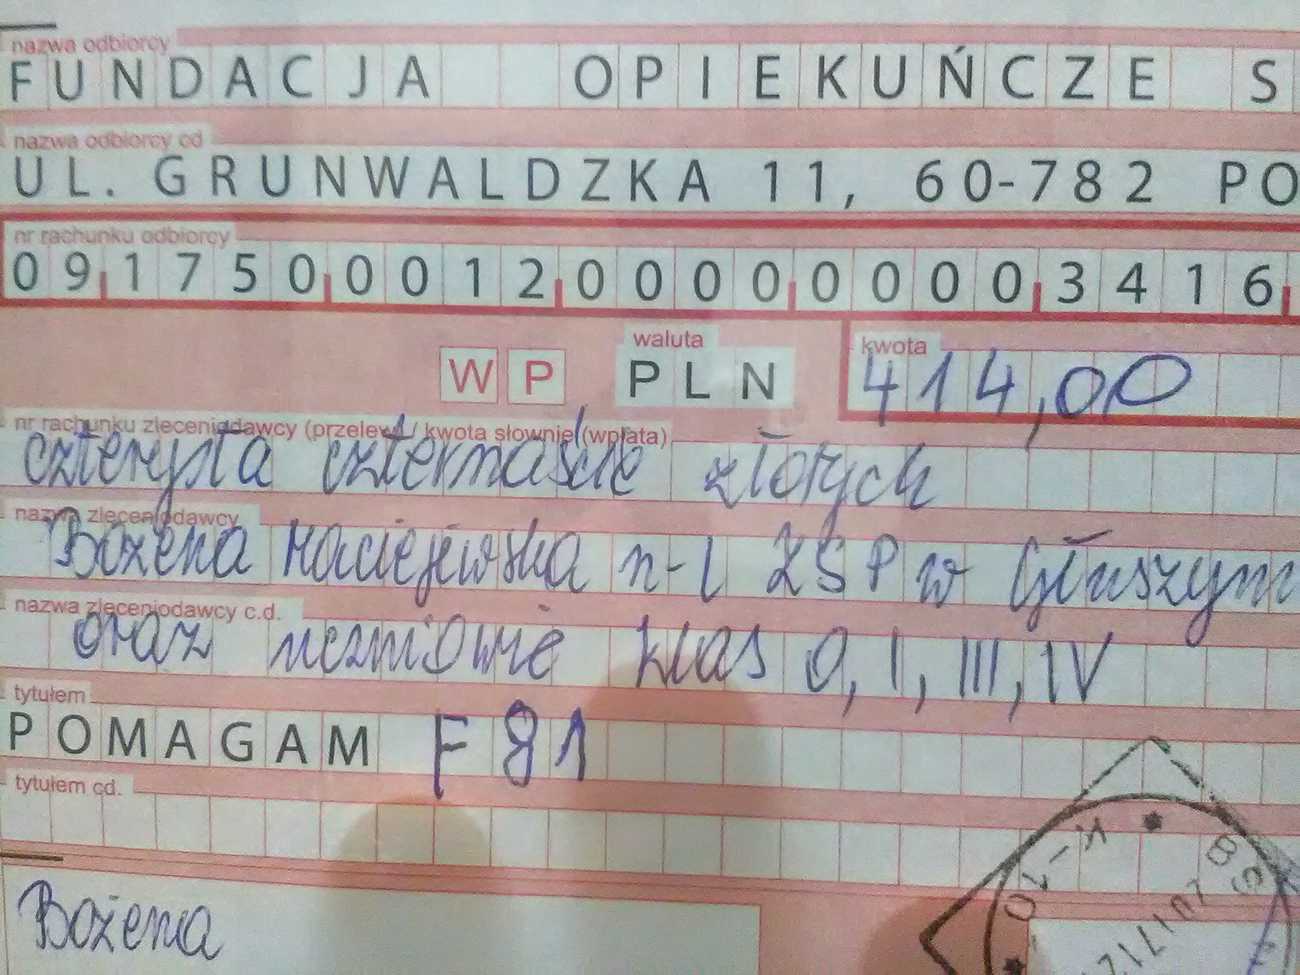 nazwa odbiorcy
FUNDACJA OPIEKUŃCZE S
nazwa odbiorcy cd
UL. GRUNWALDZKA 11, 60-782 PO
nr rachunku odbiorcy
09 1750 0012 0000 0000 3416
waluta
kwota
WP PLN 414,00
nr rachunku zleceniodawcy (przelew) / kwota słownie (wpłata)
czterysta czternaście złotych
nazwa zleceniodawcy
Bożena Maciejewska n-l ZSP w Głuszynie
nazwa zleceniodawcy c.d.
oraz uczniowie klas 0, I, III, IV
tytułem
POMAGAM F 81
tytułem cd.
Bożena